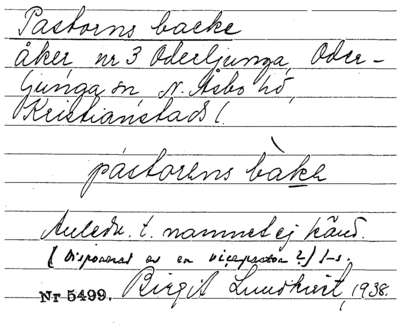 Pastorns backe
åker nr 3 Oderljunga, Oder-
ljunga sn N. Åsbo hd,
Kristianstads l.
pástorens bàke
Anledn. t. namnet ej känd.
(Disponerad av en vicepastor?) 1-s.
Nr 5499. Birgit Lundkvist, 1938.